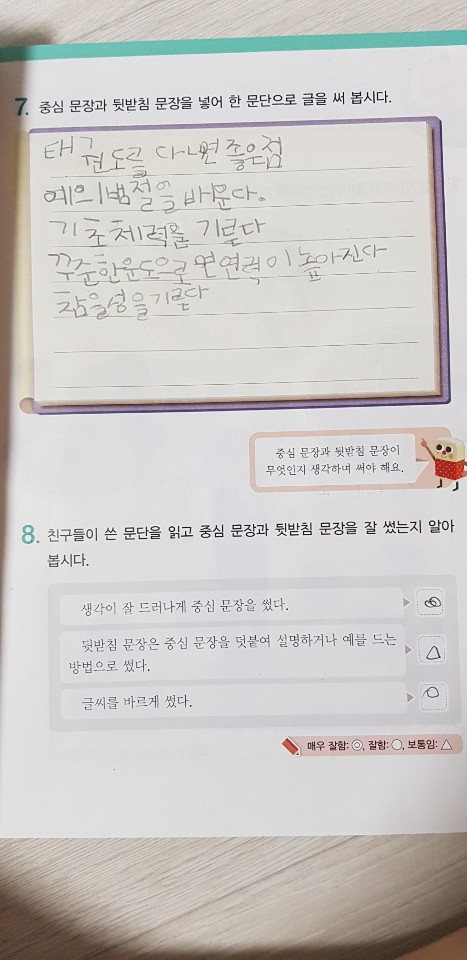 7. 중심 문장과 뒷받침 문장을 넣어 한 문단으로 글을 써 봅시다.
태권도를 다니면 좋은점
예의범절을 배운다.
기초체력을 기른다
꾸준한운도으로 면연력이 높아진다
참을성을기른다
중심 문장과 뒷받침 문장이
무엇인지 생각하며 써야 해요.
8. 친구들이 쓴 문단을 읽고 중심 문장과 뒷받침 문장을 잘 썼는지 알아
봅시다.
생각이 잘 드러나게 중심 문장을 썼다.
뒷받침 문장은 중심 문장을 덧붙여 설명하거나 예를 드는
방법으로 썼다.
글씨를 바르게 썼다.
매우 잘함: ◎, 잘함: ○, 보통임: △